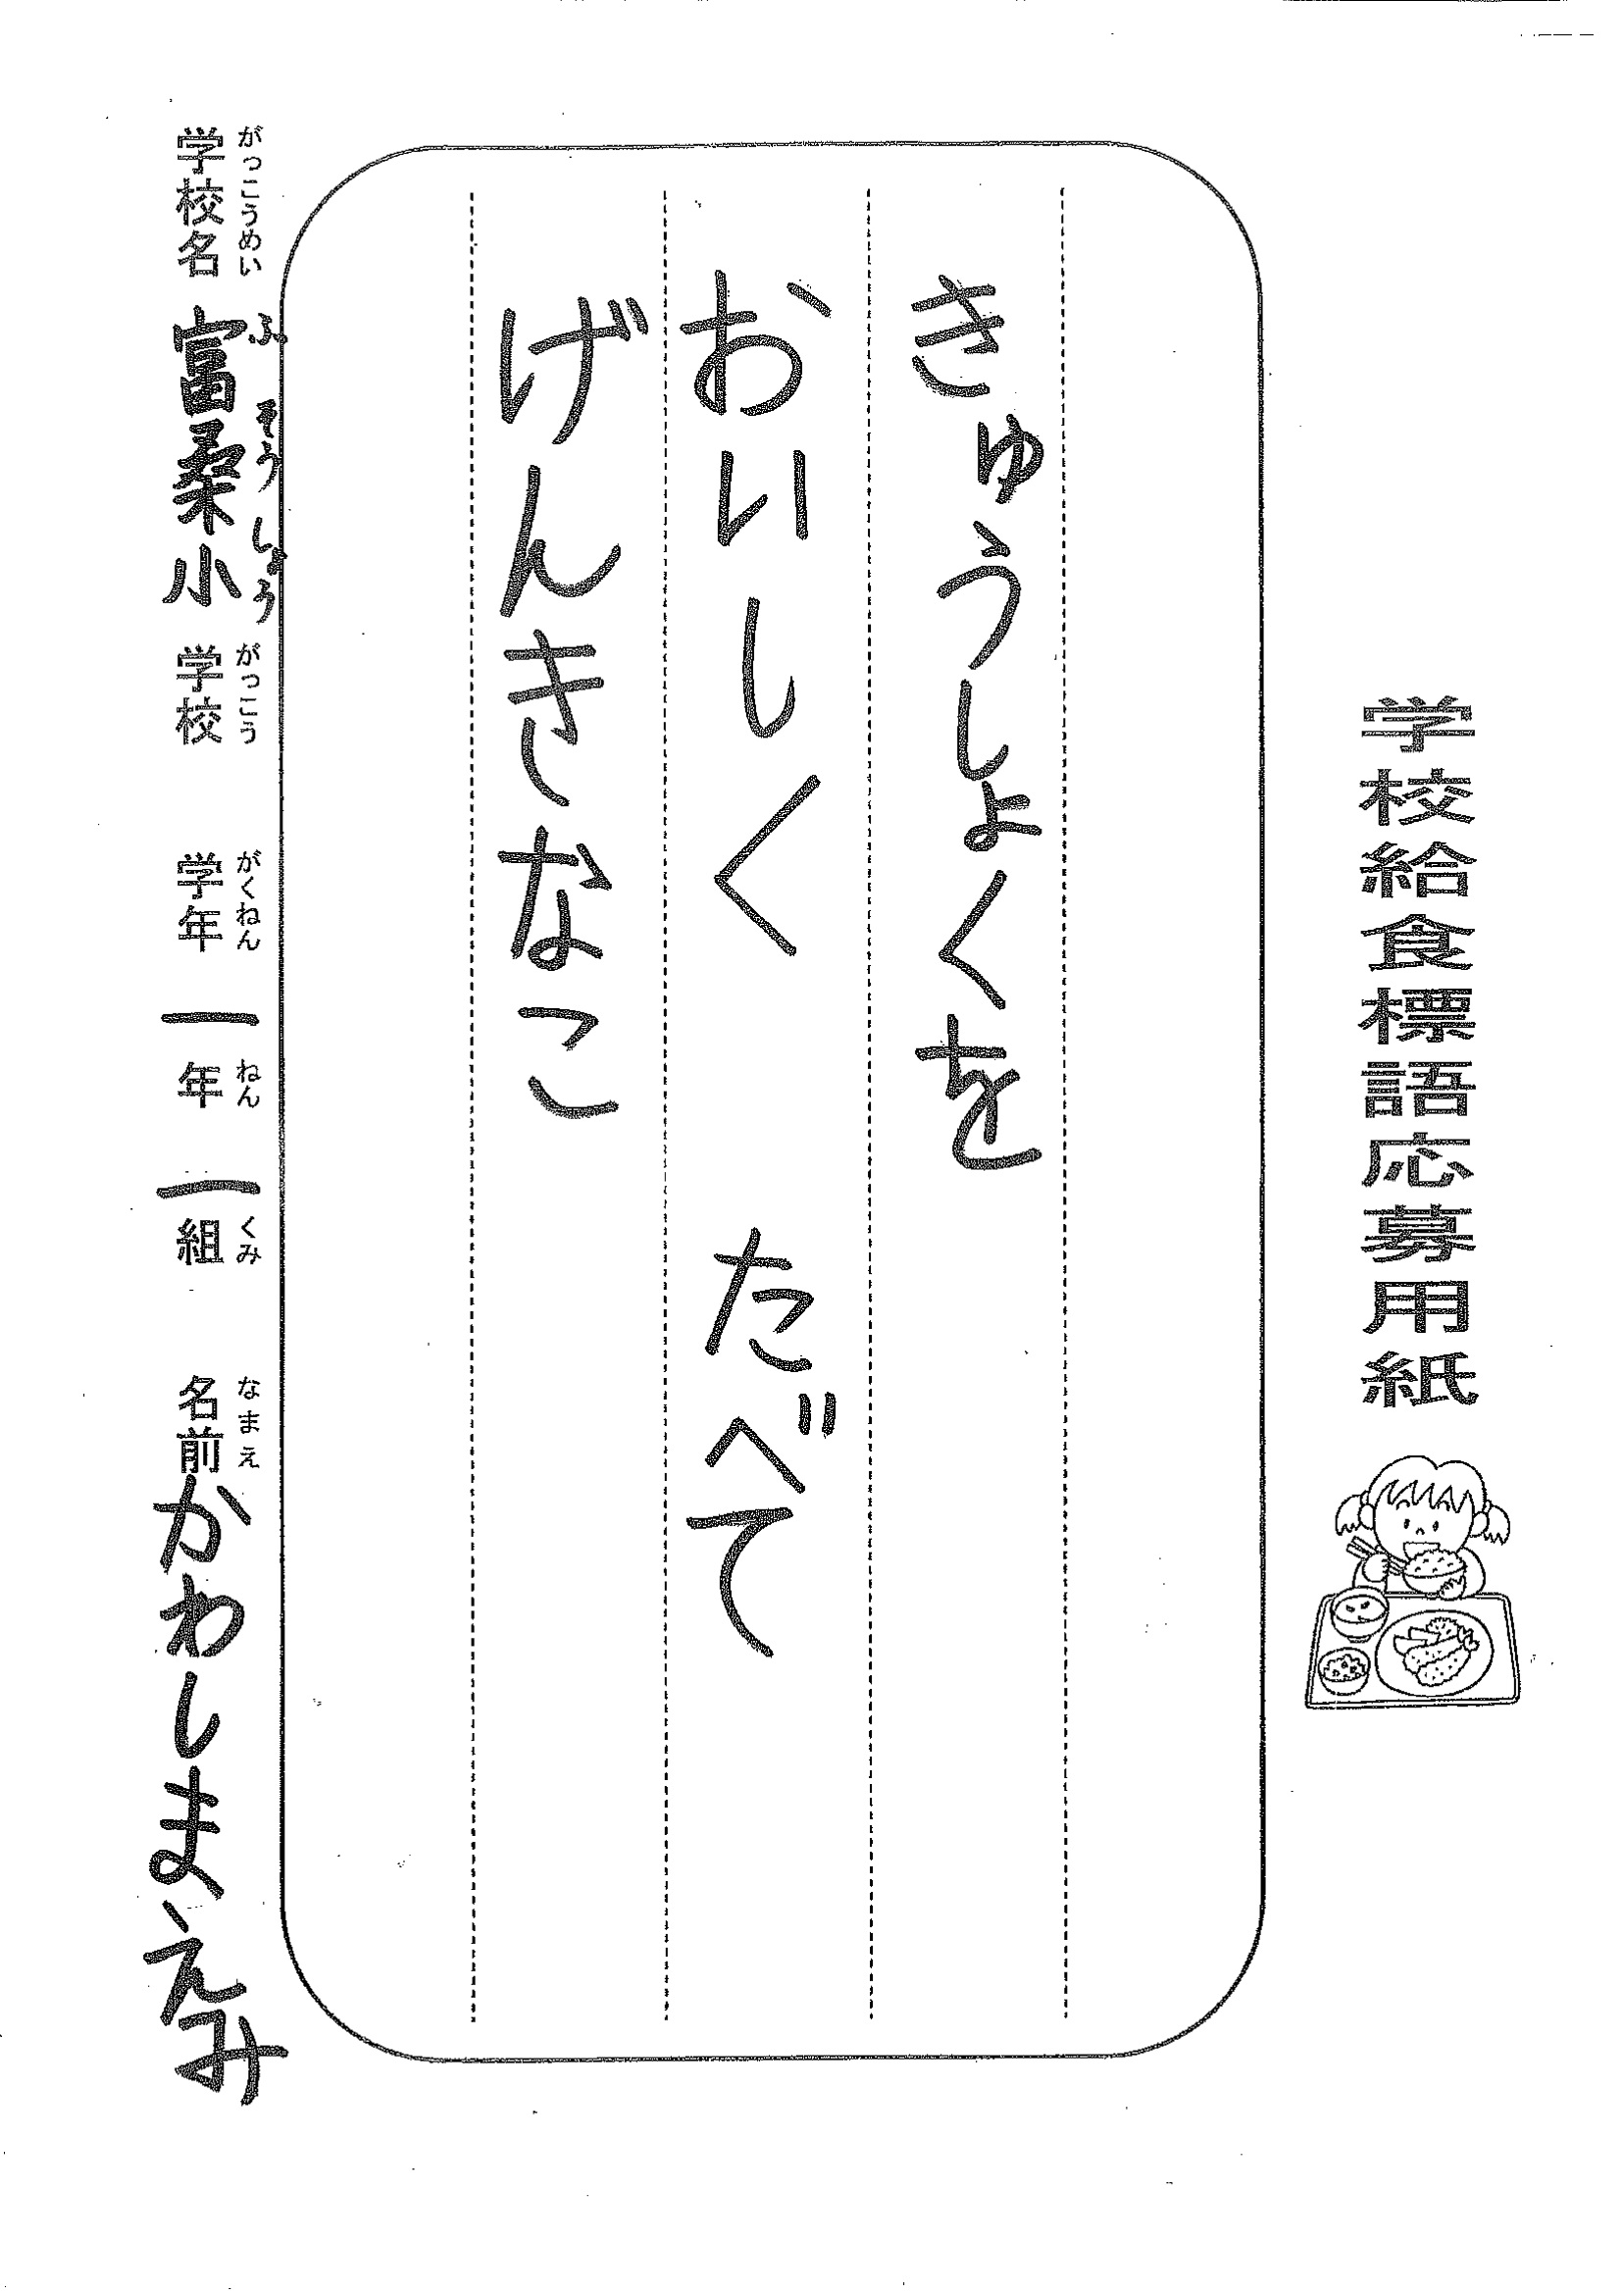 学校給食標語応募用紙
きゅうしょくを
おいしく たべて
げんきなこ
がっこうめい ふ そうしょう がっこう がくねん ねん くみ なまえ
学校名 富桑小 学校 学年 一年 一組 名前 かわしまえみ